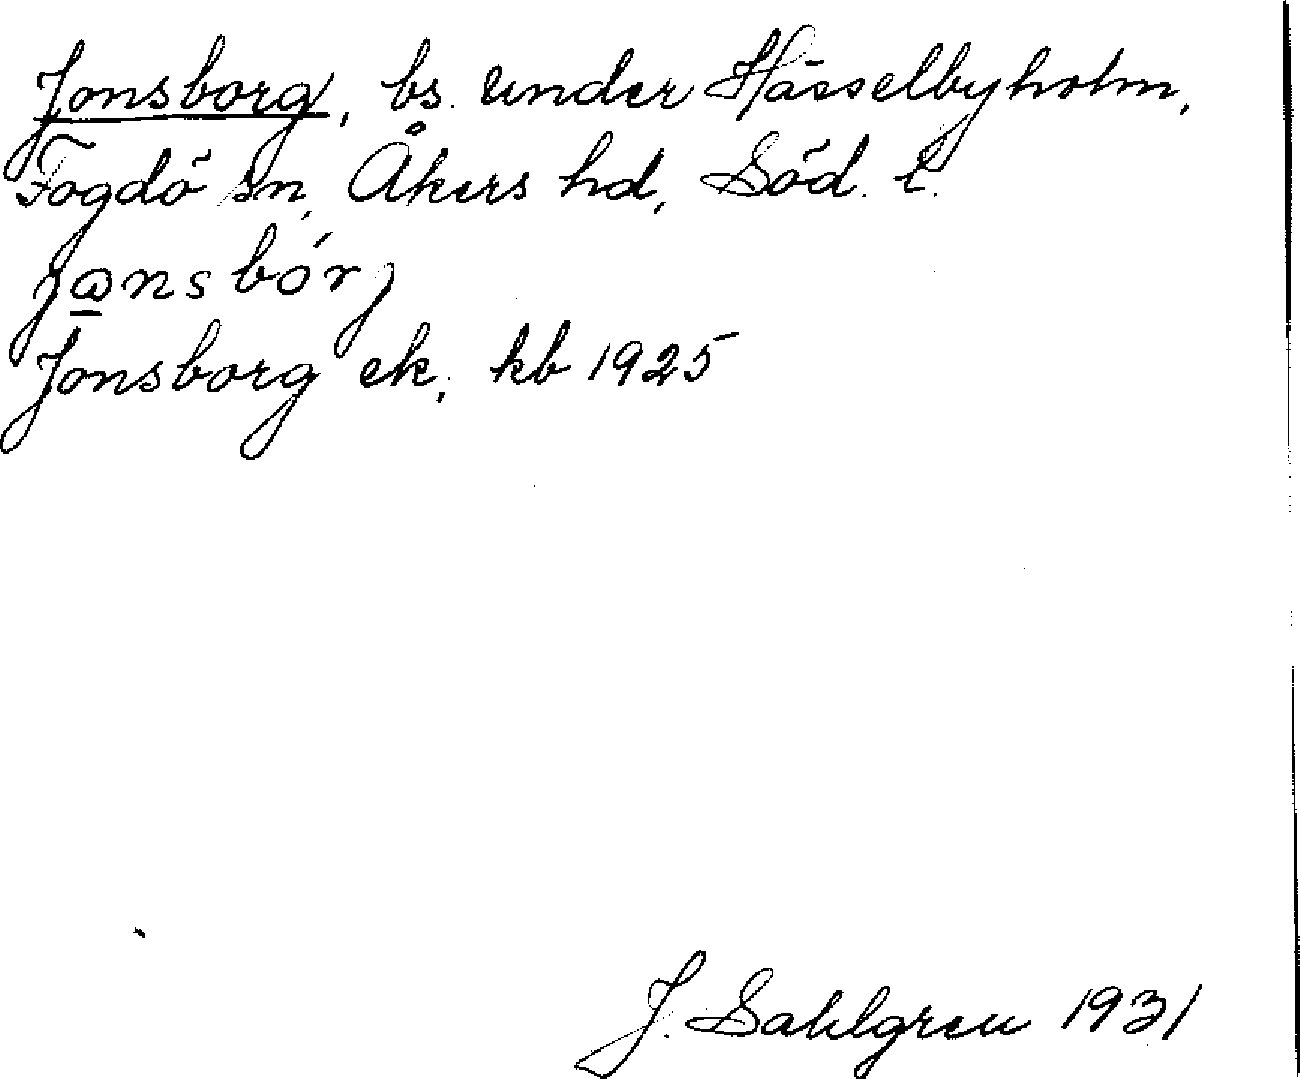 Jonsborg, bs. under Hässelbyholm,
Fogdö sn, Åkers hd, Söd. l.
Jonsborg ek, kb 1925
J. Sahlgren 1931